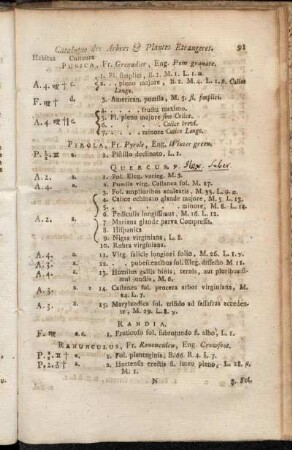 Catalogue des Arbres & Plantes Etrangeres. 91
Habitus Cultura
PUNICA, Fr. Grenadier, Eng. Pom granate.
1. Fl. simplici, B. 2. M. 1. L. 1. a.
A. 4. c. 2. . pleno majore, B. 2. M. 4. L. 1. a. Calice Longo.
F. d. 3. American. pumila, M. 5. fl. simplici.
4. . . fructu maximo.
A. 4. c. 5. Fl. pleno majore sive Calice.
6. . . . Calice brevi.
7. . . . minore Calice Longo.
PIROLA, Fr. Pyrole, Eng. Winter green.
P. a. 1. Pistillo declinato, L. 1.
QUERCUS, v.
A. 2. a. 1. Fol. Eleg. varieg. M. 3.
A. 4. a. 2. Pumila virg. Castanea fol. M. 17.
3. Fol. amplioribus aculeatis, M. 33. L.
4. Calice echinato glande majore, M. 5. L. 13.
5. . . . minore, M. 6. L. 14.
6. Pediculis longissimis, M. 16. L. 12.
A. 2. a. 7. Mariana glande parva Compressa.
8. Hispanica
9. Nigra virginiana, L. 8.
10. Rubra virginiana.
A. 4. a. 11. Virg. salicis longiori folio, M. 26. L. 1. y.
A. 2. a. 12. . pubescentibus fol. Eleg. dissectis M. 11.
A. 3. a. 13. Humilis gallis binis, ternis, aut pluribus simul junctis, M. 8.
A. 3. a 2 14. Castanea fol. procera arbor virginiana, M. 24. L. 7.
A. 3. a. 15. Marylandica fol. trifido ad sassafras accedente, M. 29. L. 8. y.
RANDIA,
F. e. 1. Fruticosa fol. subrotundo fl. albo, L. 1.
RANUNCULUS, Fr. Renoncules, Eng. Crowfoot.
P. a. 1. Fol. plantaginis, Bodd. R. 4. L. 7.
P. 2. a. 2. Hortensis erectis fl. luteo pleno, L. 28. M. 1.
N 3. Fol.